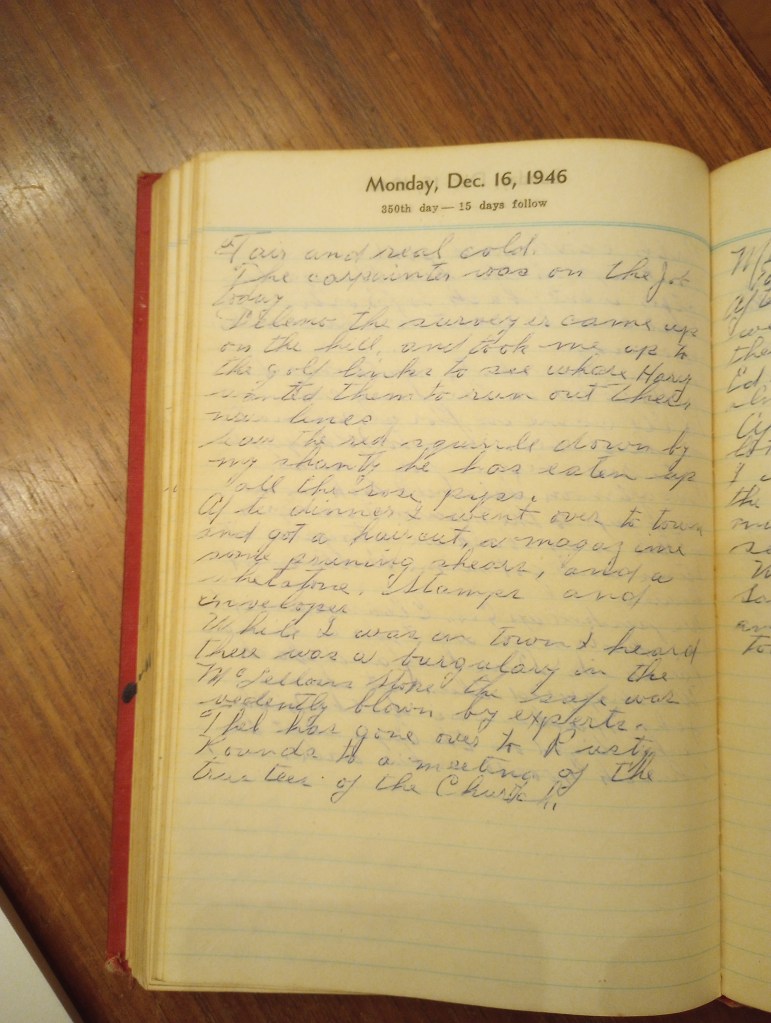 Monday, Dec. 16, 1946
350th day — 15 days follow
Fair and real cold.
The carpainter was on the job
today
the surveyer came up
on the hill, and took me up to
the golf links to see whare Harry
wanted them to run out thees
new lines
Saw the red squirrile down by
my shanty he has eaten up
all the rose pips.
After dinner I went over to town
and got a haircut, a magazine
some pruning shears, and a
Stamps and
envelopes
While I was in town I heard
there was a burgulary in the
McLellans Store the safe was
evedently blown by experts.
Thel has gone over to Rusty
Rounds to a meeting of the
trustees of the Church.